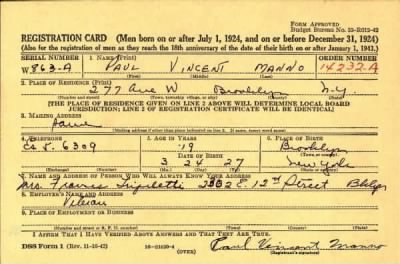 FORM APPROVED
Budget Bureau No. 33-R012-42
REGISTRATION CARD (Men born on or after July 1, 1924, and on or before December 31, 1924)
(Also for the registration of men as they reach the 18th anniversary of the date of their birth on or after January 1, 1943.)
SERIAL NUMBER 1. NAME (Print) ORDER NUMBER
W 863-A PAUL VINCENT MANNO 14232-A
(First) (Middle) (Last)
2. PLACE OF RESIDENCE (Print)
277 Ave W Brooklyn N-y-
(Number and street) (Town, township, village, or city) (County) (State)
[THE PLACE OF RESIDENCE GIVEN ON LINE 2 ABOVE WILL DETERMINE LOCAL BOARD
JURISDICTION; LINE 2 OF REGISTRATION CERTIFICATE WILL BE IDENTICAL]
3. MAILING ADDRESS
Same
[Mailing address if other than place indicated on line 2. If same, insert word same]
4. TELEPHONE 5. AGE IN YEARS 6. PLACE OF BIRTH
6309 19 Brooklyn
DATE OF BIRTH (Town or county)
3 24 27 New York
(Exchange) (Number) (Mo.) (Day) (Yr.) (State or country)
7. NAME AND ADDRESS OF PERSON WHO WILL ALWAYS KNOW YOUR ADDRESS
Mrs. Frances E. 12th Street Bklyn
8. EMPLOYER'S NAME AND ADDRESS
Veteran
9. PLACE OF EMPLOYMENT OR BUSINESS
(Number and street or R. F. D. number) (Town) (County) (State)
I AFFIRM THAT I HAVE VERIFIED ABOVE ANSWERS AND THAT THEY ARE TRUE.
DSS Form 1 (Rev. 11-16-42) (OVER) Paul Vincent Manno
(Registrant's signature)